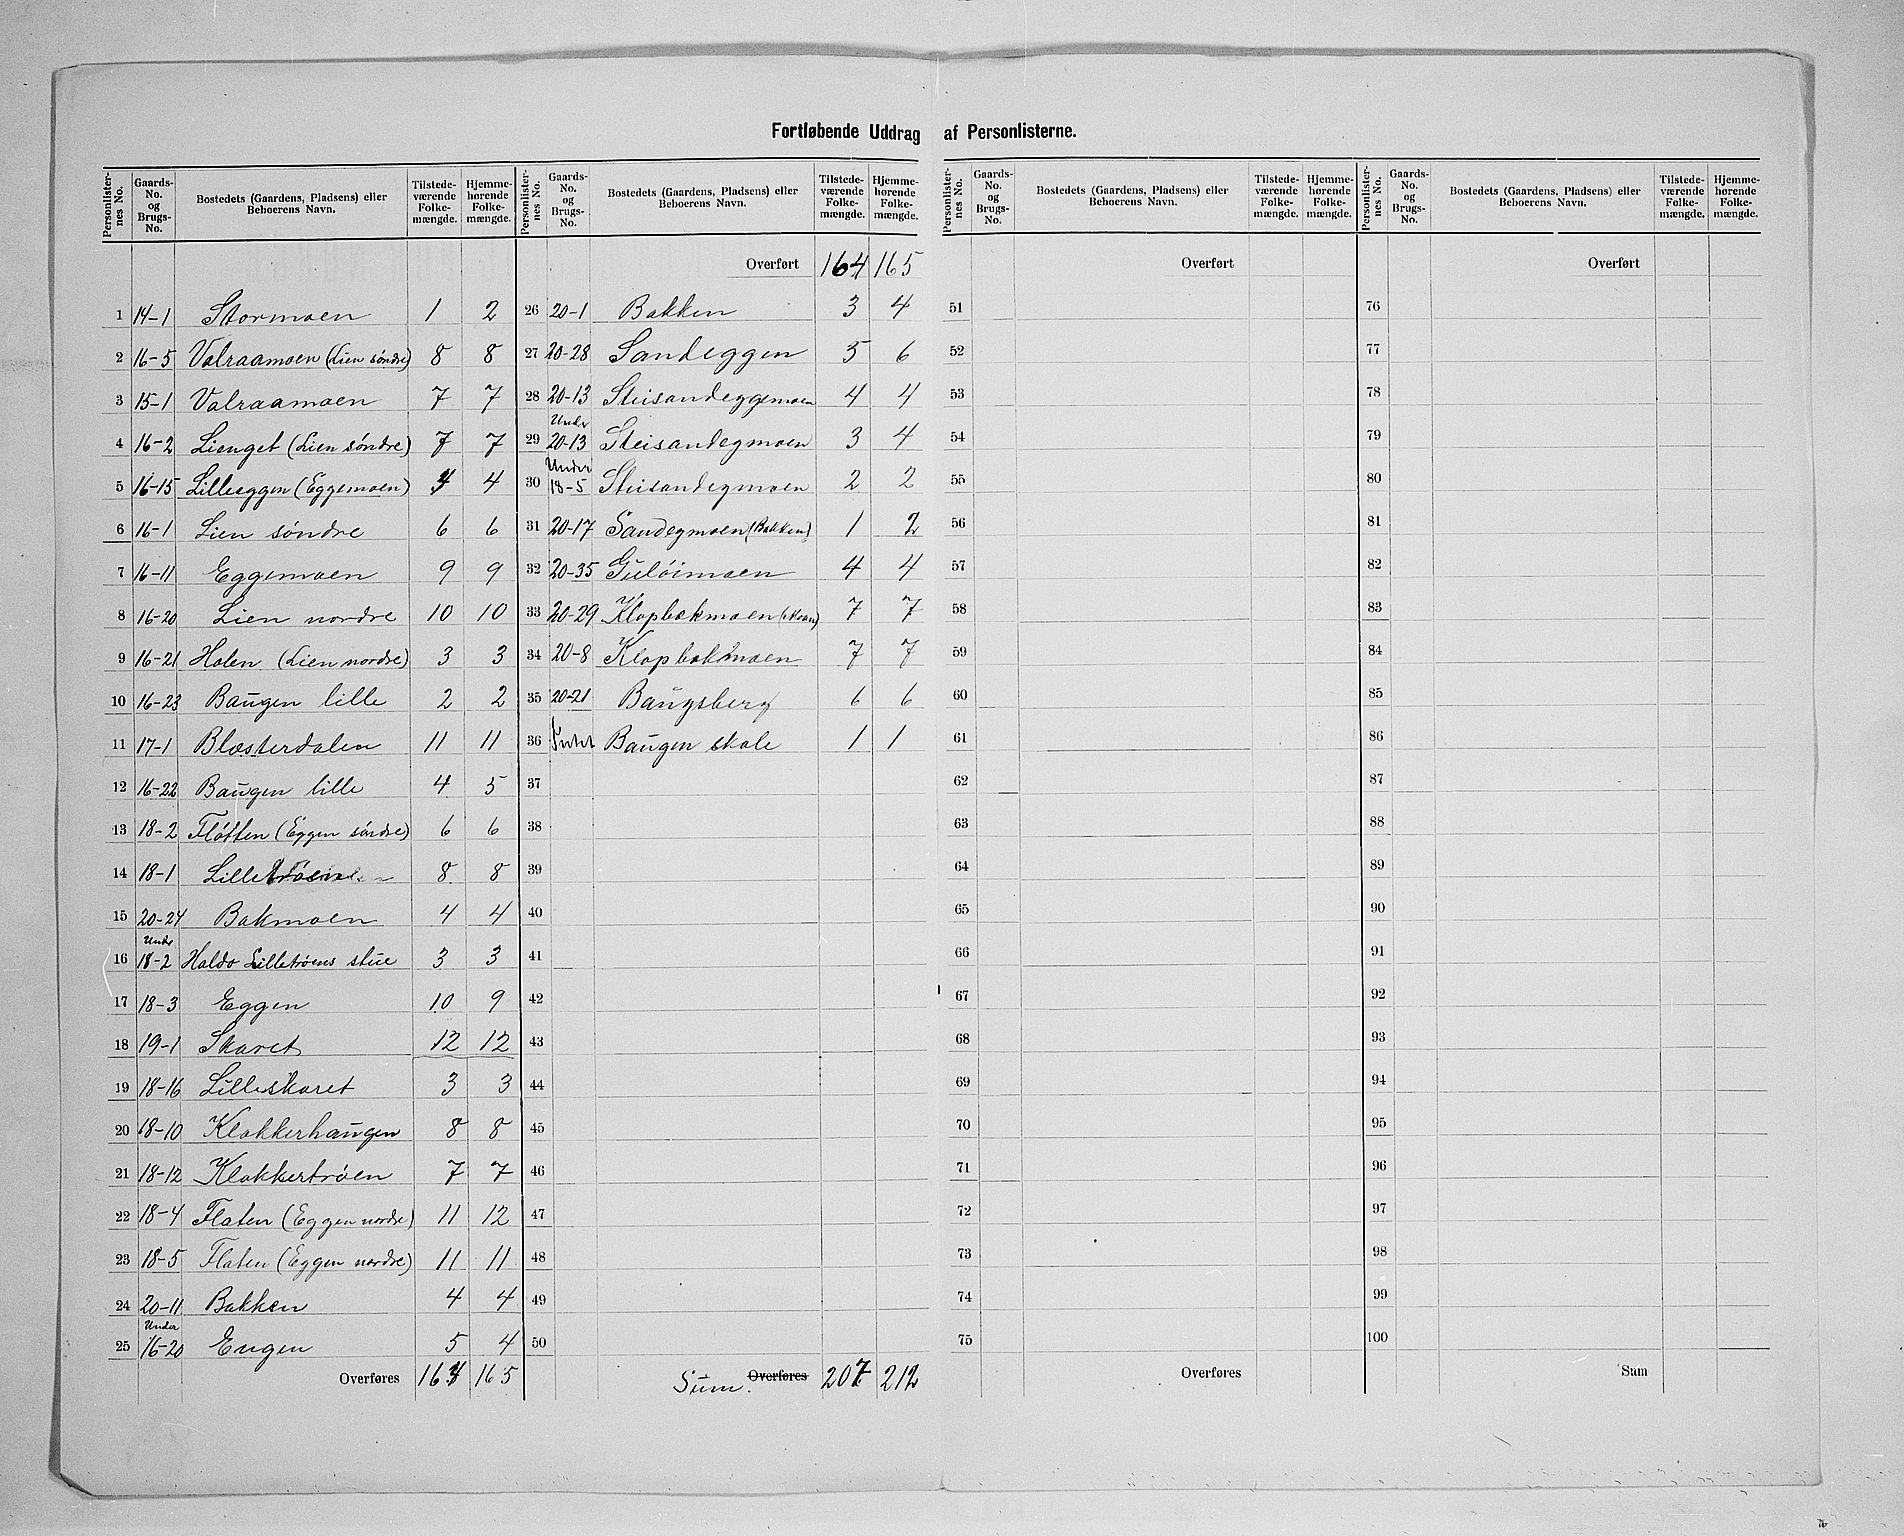 Fortløbende Uddrag af Personlisterne.
Personlisternes No. Gaards-No. og Brugs-No. Bostedets (Gaardens, Pladsens) eller Beboerens Navn. Tilstedeværende Folkemængde. Hjemmehørende Folkemængde.
1 14-1 Stormoen 1 2
2 16-5 Valraamoen (Lien søndre) 8 8
3 15-1 Valraamoen 7 7
4 16-2 Lienget (Lien søndre) 7 7
5 16-15 Lilleeggen (Eggemoen) 4 4
6 16-1 Lien søndre 6 6
7 16-11 Eggemoen 9 9
8 16-20 Lien nordre 10 10
9 16-21 Holen (Lien nordre) 3 3
10 16-23 Baugen lille 2 2
11 17-1 Blæsterdalen 11 11
12 16-22 Baugen lille 4 5
13 18-2 Fløtten (Eggen søndre) 6 6
14 18-1 Lilletrøen 8 8
15 20-24 Bakmoen 4 4
16 Under 18-2 Haldo Lilletrøens stue 3 3
17 18-3 Eggen 10 9
18 19-1 Skaret 12 12
19 18-16 Lilleskaret 3 3
20 18-10 Klokkerhaugen 8 8
21 18-12 Klokkertrøen 7 7
22 18-4 Flaten (Eggen nordre) 11 12
23 18-5 Flaten (Eggen nordre) 11 11
24 20-11 Bakken 4 4
25 Under 16-20 Engen 5 4
Overføres 164 165
Personlisternes No. Gaards-No. og Brugs-No. Bostedets (Gaardens, Pladsens) eller Beboerens Navn. Tilstedeværende Folkemængde. Hjemmehørende Folkemængde.
Overført 164 165
26 20-1 Bakken 3 4
27 20-28 Sandeggen 5 6
28 20-13 Steisandeggemoen 4 4
29 Under 20-13 Steisandegmoen 3 4
30 Under 18-5 Steisandegmoen 2 2
31 20-17 Sandegmoen (Bakken) 1 2
32 20-35 Guløimoen 4 4
33 20-29 Klopbekmoen 7 7
34 20-8 Klopbakmoen 7 7
35 20-21 Baugsberg 6 6
36 Baugen skole 1 1
37
38
39
40
41
42
43
44
45
46
47
48
49
50
Sum. Overføres 207 212
Personlisternes No. Gaards-No. og Brugs-No. Bostedets (Gaardens, Pladsens) eller Beboerens Navn. Tilstedeværende Folkemængde. Hjemmehørende Folkemængde.
Overført
51
52
53
54
55
56
57
58
59
60
61
62
63
64
65
66
67
68
69
70
71
72
73
74
75
Overføres
Personlisternes No. Gaards-No. og Brugs-No. Bostedets (Gaardens, Pladsens) eller Beboerens Navn. Tilstedeværende Folkemængde. Hjemmehørende Folkemængde.
Overført
76
77
78
79
80
81
82
83
84
85
86
87
88
89
90
91
92
93
94
95
96
97
98
99
100
Sum